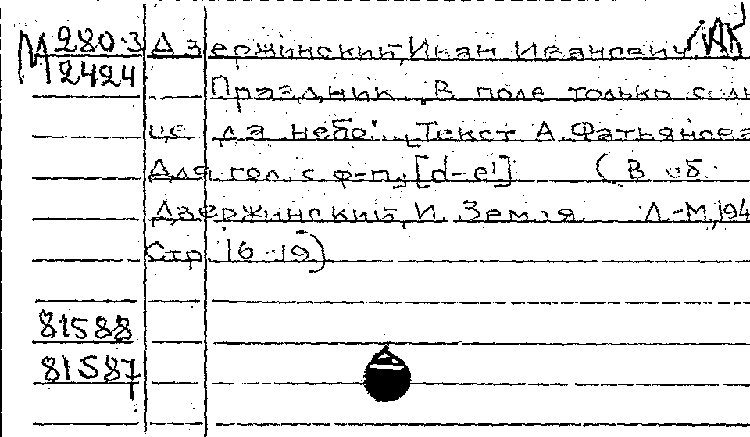 М 280-3 Дзержинский, Иван Иванович
2424 Праздник. "В поле только солн-
це да небо". Текст А. Фатьянова
Для гол. с ф-п. [d-e¹] (В сб.
Дзержинский, И. Земля Л.-М., 194
Стр. 16-19)
81588
81587